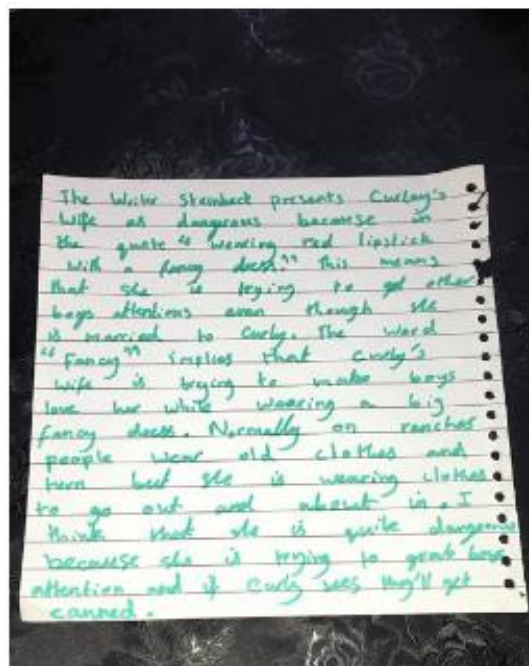 The Writer Steinback presents Curlay's
Wife as dangerous because in
the quote "wearing red lipstick
with a fancy dress." This means
that she is trying to get other
boys attentions even though she
is married to Curly. The word
"Fancy" implies that Curly's
wife is trying to make boys
love her while wearing a big
fancy dress. Normally on ranches
people wear old clothes and
torn but she is wearing clothes
to go out and about in. I
think that she is quite dangerous
because she is trying to grab boys
attention and if Curly sees they'll get
canned.